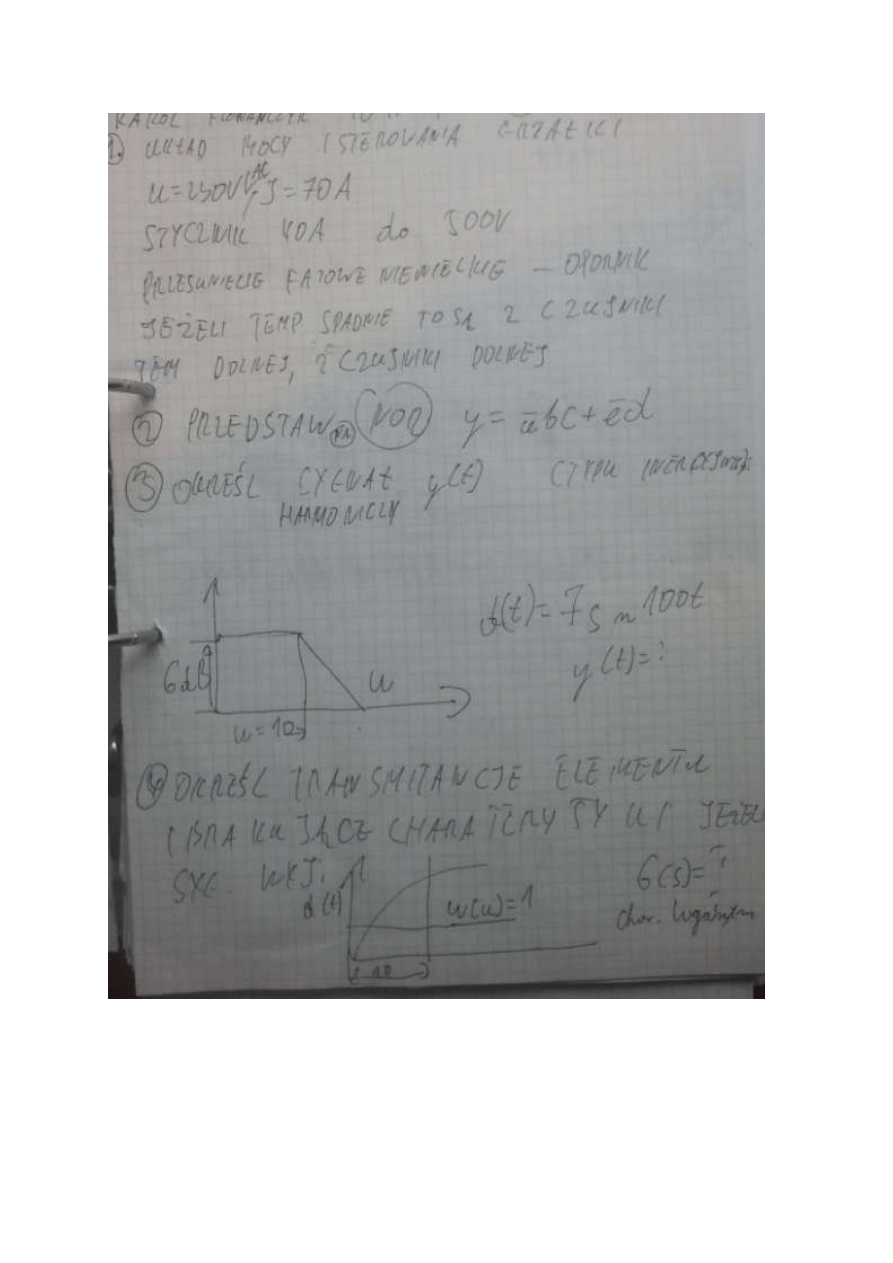 KAROL
1. UKŁAD MOCY I STEROWANIA GRZAŁKI
U=230V AC, J=70A
STYCZNIK 40A do 500V
PRZESUNIECIE FAZOWE NIEWIELKIE - OPORNIK
JEŻELI TEMP SPADNIE TO SĄ 2 CZUJNIKI
TEM DOLNEJ, 2 CZUJNIKI DOLNEJ
2 PRZEDSTAW NA NOR y = a̅bc + e̅d
3 OKREŚL SYGNAŁ y(t) (TYPU
HARMONICZNY
(t) = 7 sin 100t
y(t) = ?
6dB
w=10
4 OKREŚL TRANSMITANCJE ELEMENTU
I BRAKUJĄCE CHARATERYSTYKI JEŻELI
SYG.
(t)
w(w)=1
G(s)=?
char.
10